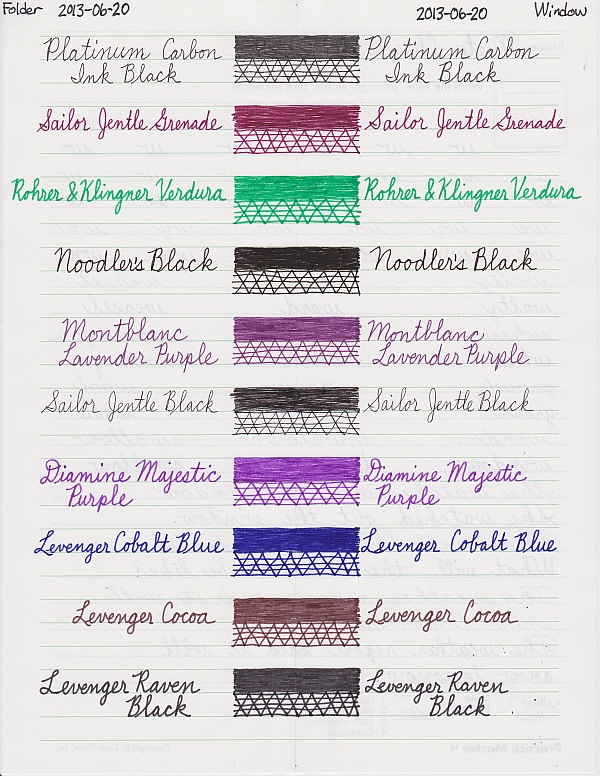 Folder 2013-06-20 2013-06-20 Window
Platinum Carbon Platinum Carbon
Ink Black Ink Black
Sailor Jentle Grenade Sailor Jentle Grenade
Rohrer & Klingner Verdura Rohrer & Klingner Verdura
Noodler's Black Noodler's Black
Montblanc Montblanc
Lavender Purple Lavender Purple
Sailor Jentle Black Sailor Jentle Black
Diamine Majestic Diamine Majestic
Purple Purple
Levenger Cobalt Blue Levenger Cobalt Blue
Levenger Cocoa Levenger Cocoa
Levenger Raven Levenger Raven
Black Black